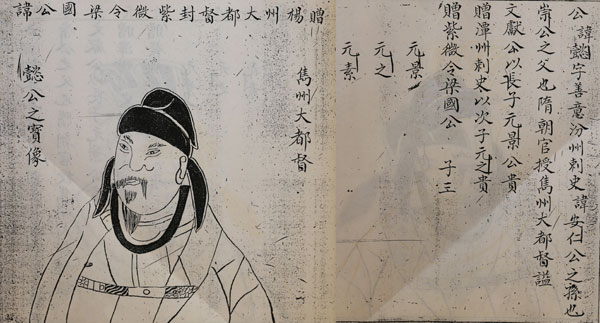 公諱懿字善意汾州刺史諱安仁公之孫也
崇公之父也隋朝官授嶲州大都督謚
文獻公以長子元景公貴
贈潭州刺史以次子元之貴
贈紫微令梁國公 子三
元景
元之
元素
贈楊州大都督封紫微令梁國公諱
嶲州大都督
懿公之寶像